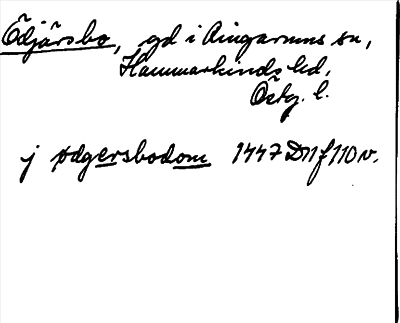 Ödjärsbo, gd i Ringarums sn,
Hammarkinds hd,
Östg. l.
j ødgersbodom 1447 Dn f 110 v.